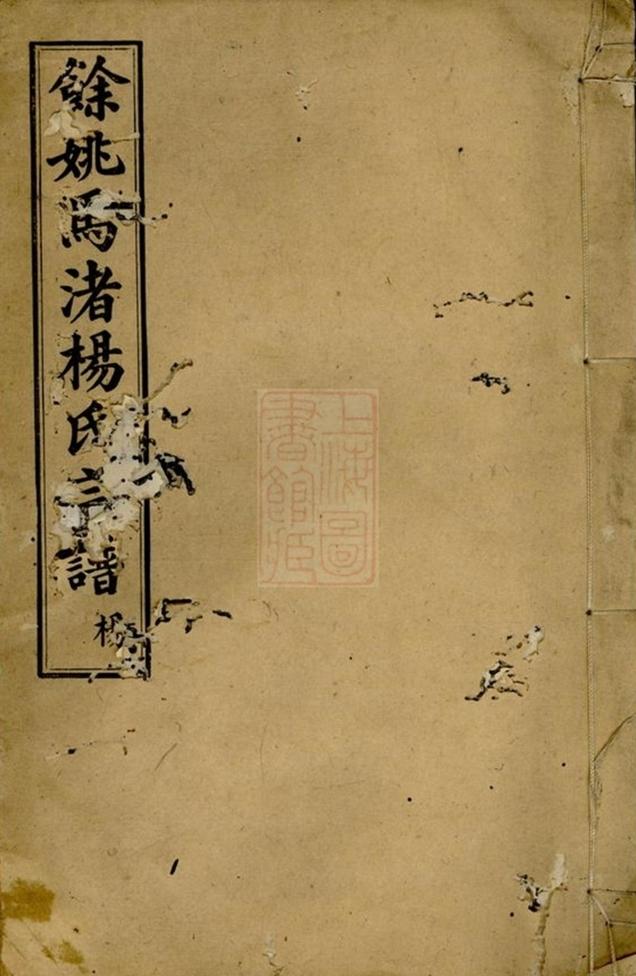 餘姚馬渚楊氏宗譜
楊
上海圖
書館藏